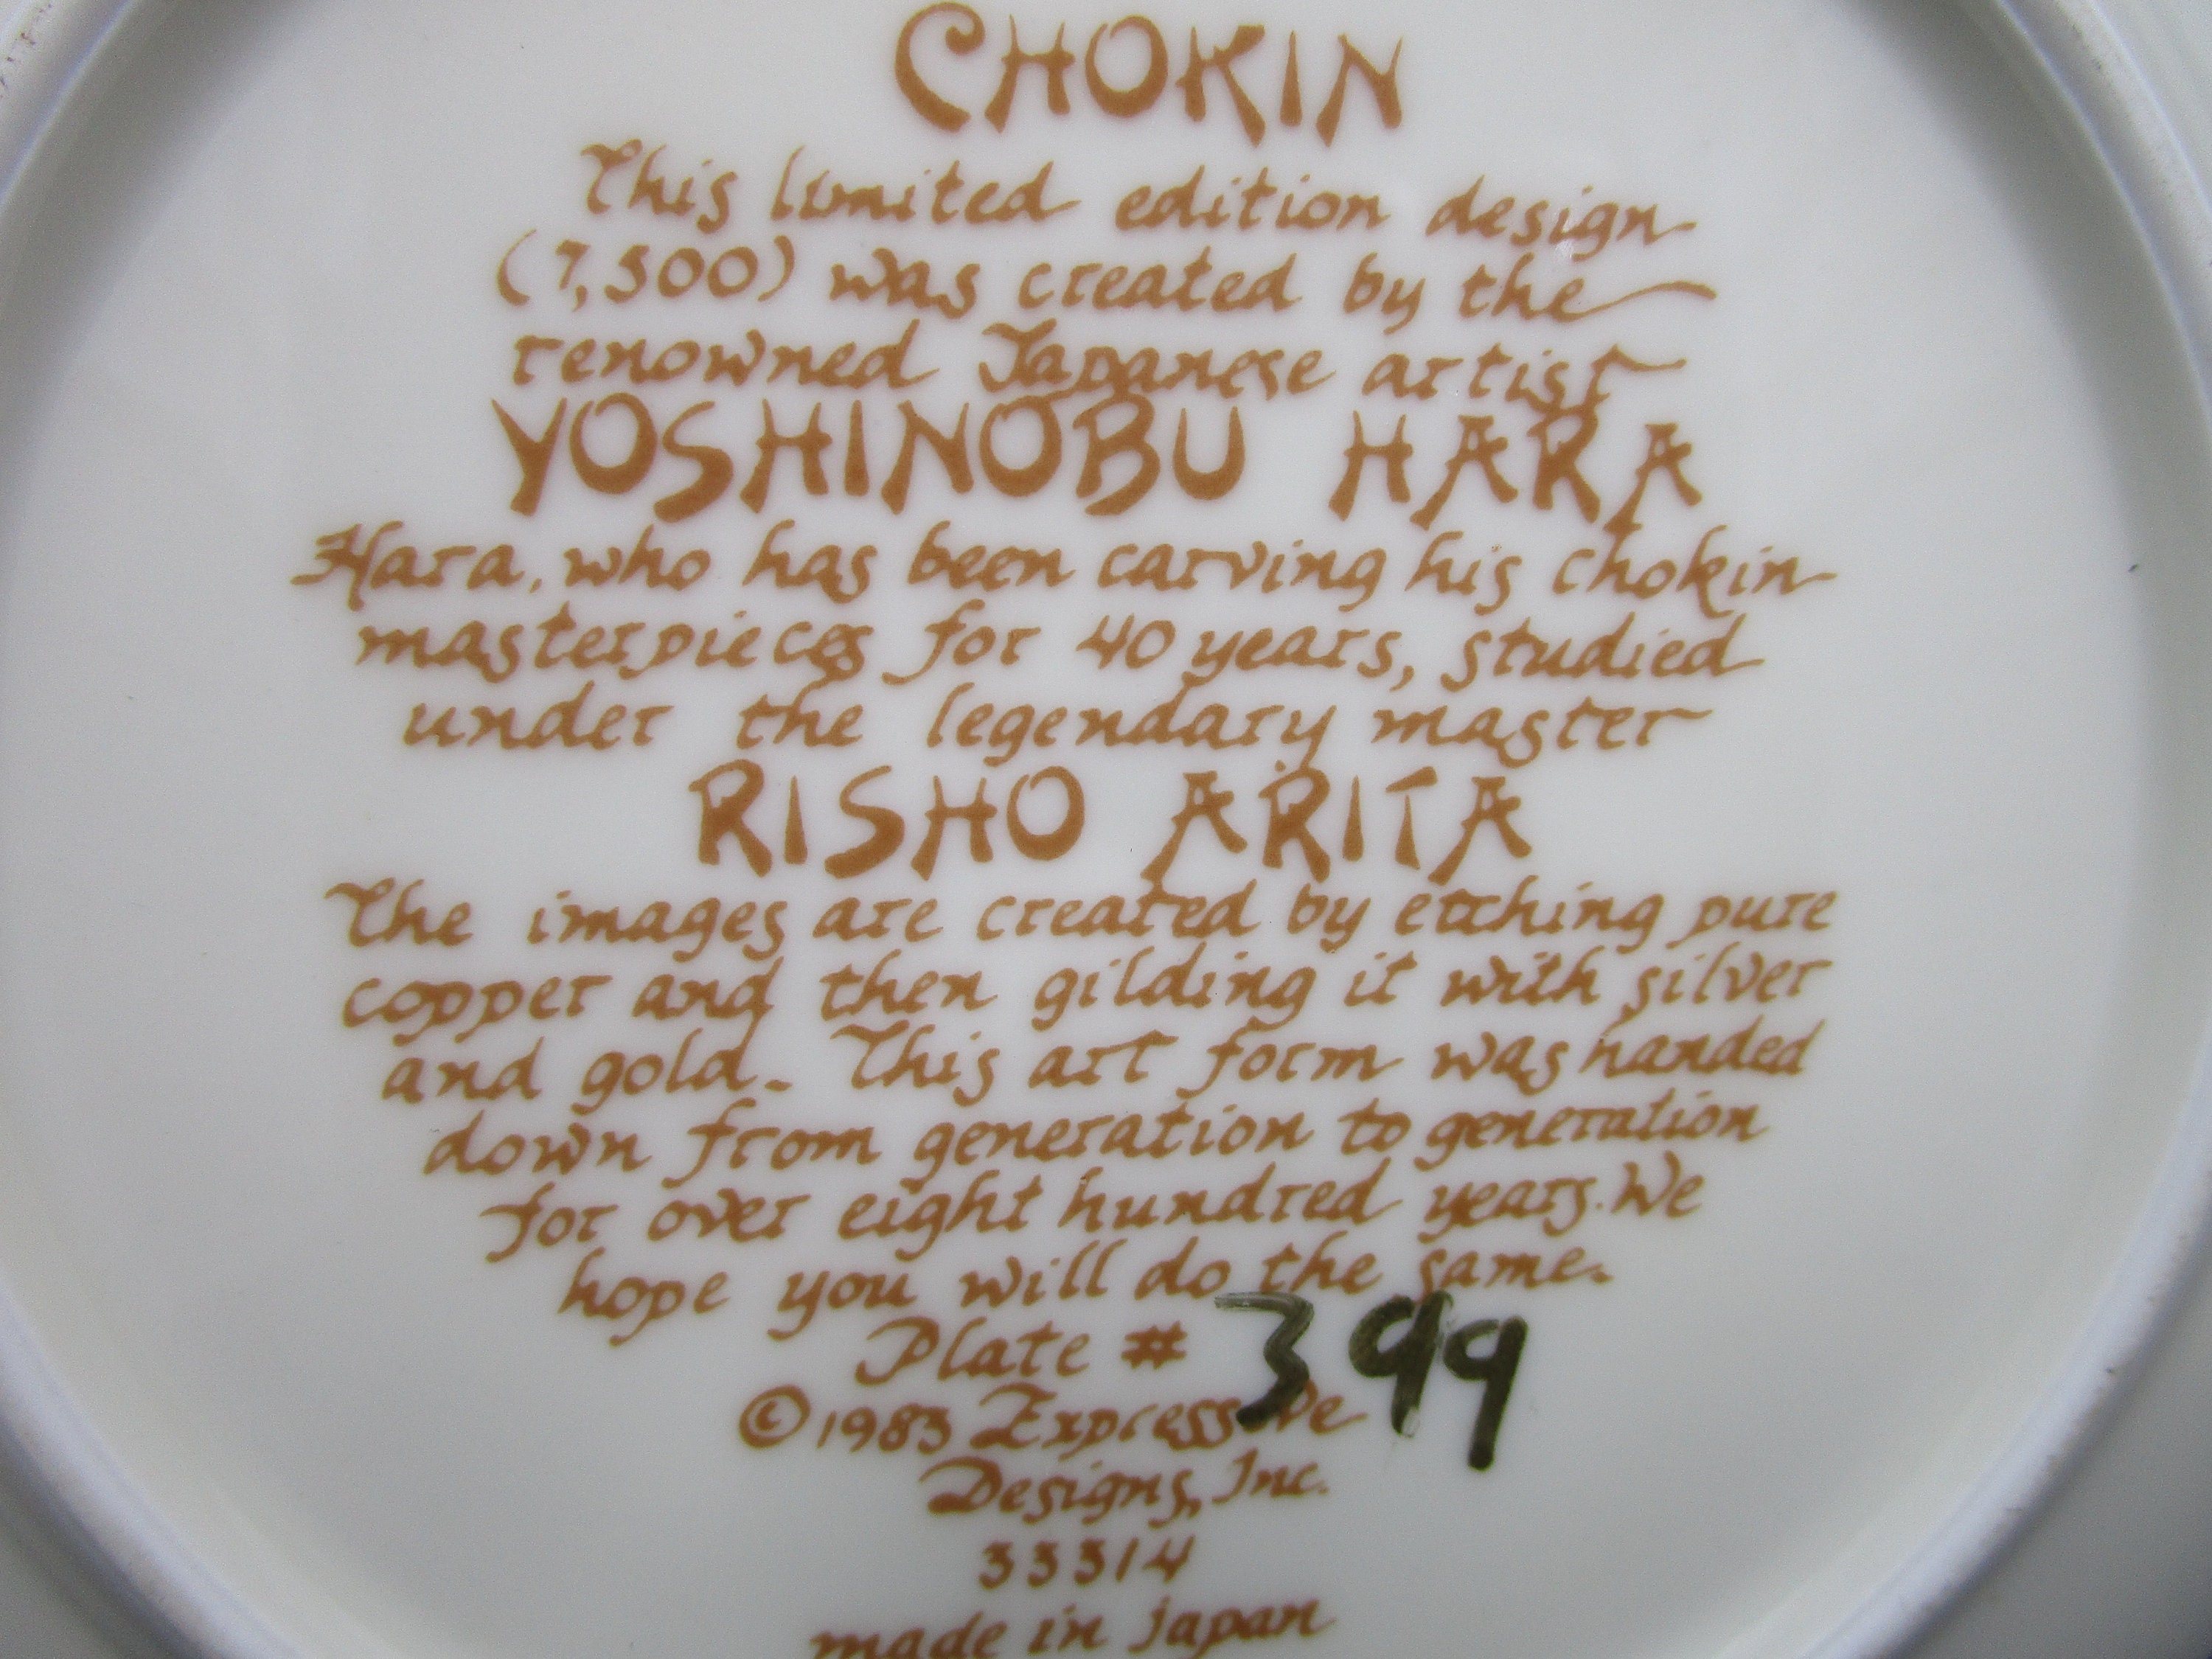 CHOKIN
This limited edition design
(7,500) was created by the
renowned Japanese artist
YOSHINOBU HARA
Hara, who has been carving his chokin
masterpieces for 40 years, studied
under the legendary master
RISHO ARITA
The images are created by etching pure
copper and then gilding it with silver
and gold. This art form was handed
down from generation to generation
for over eight hundred years. We
hope you will do the same.
Plate # 399
©1983 Express-De
Designs, Inc.
33314
made in japan